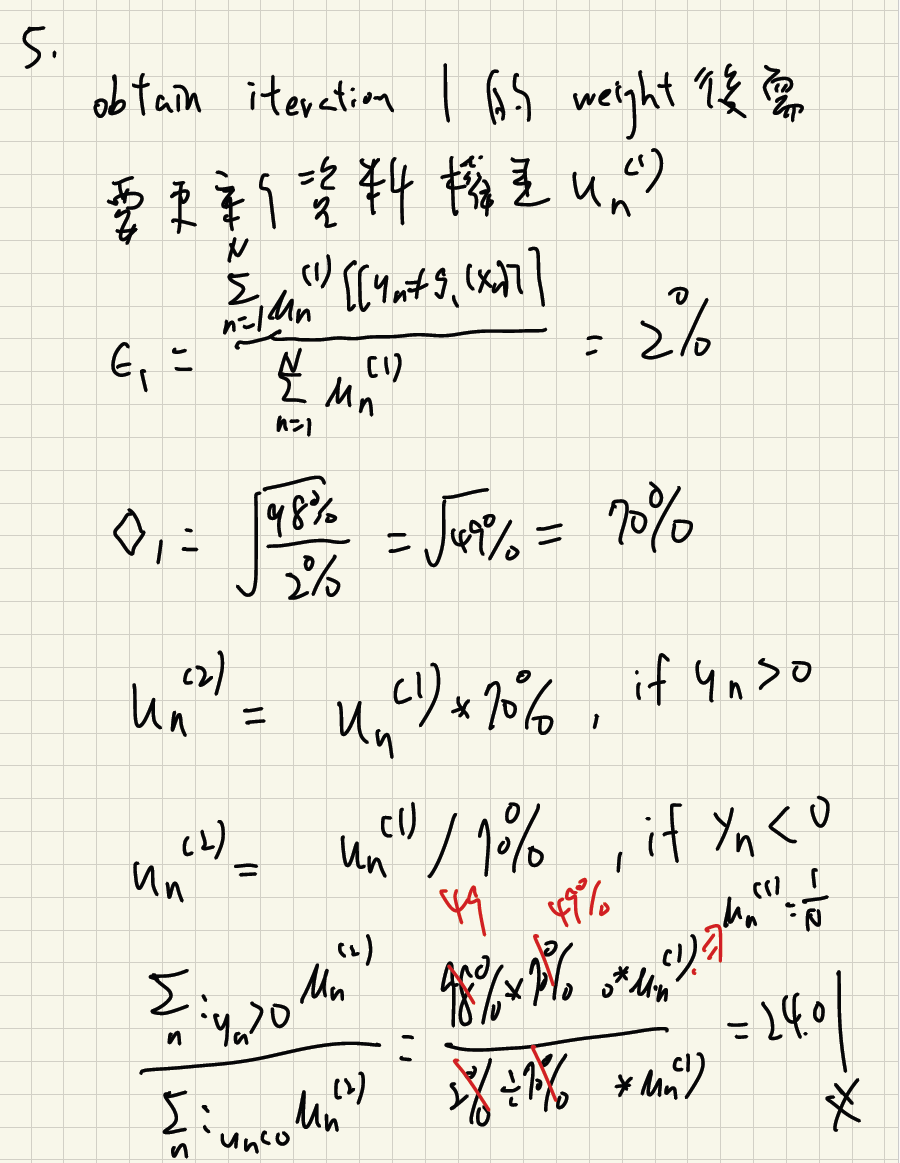 5.
obtain iteration 1 的 weight 後需
要更新資料權重 u_n^(1)
ϵ_1 = (∑_{n=1}^N u_n^(1) [[y_n ≠ g_1(x_n)]]) / (∑_{n=1}^N u_n^(1)) = 2%
◇_1 = √(98% / 2%) = √49% = 70%
u_n^(2) = u_n^(1) * 70%, if y_n > 0
u_n^(2) = u_n^(1) / 70%, if y_n < 0
49 49% u_n^(1) = 1/N
(∑_{n: y_n>0} u_n^(2)) / (∑_{n: u_n<0} u_n^(2)) = (98% * 70% * u_n^(1)) / (2% ÷ 70% * u_n^(1)) = 24.01